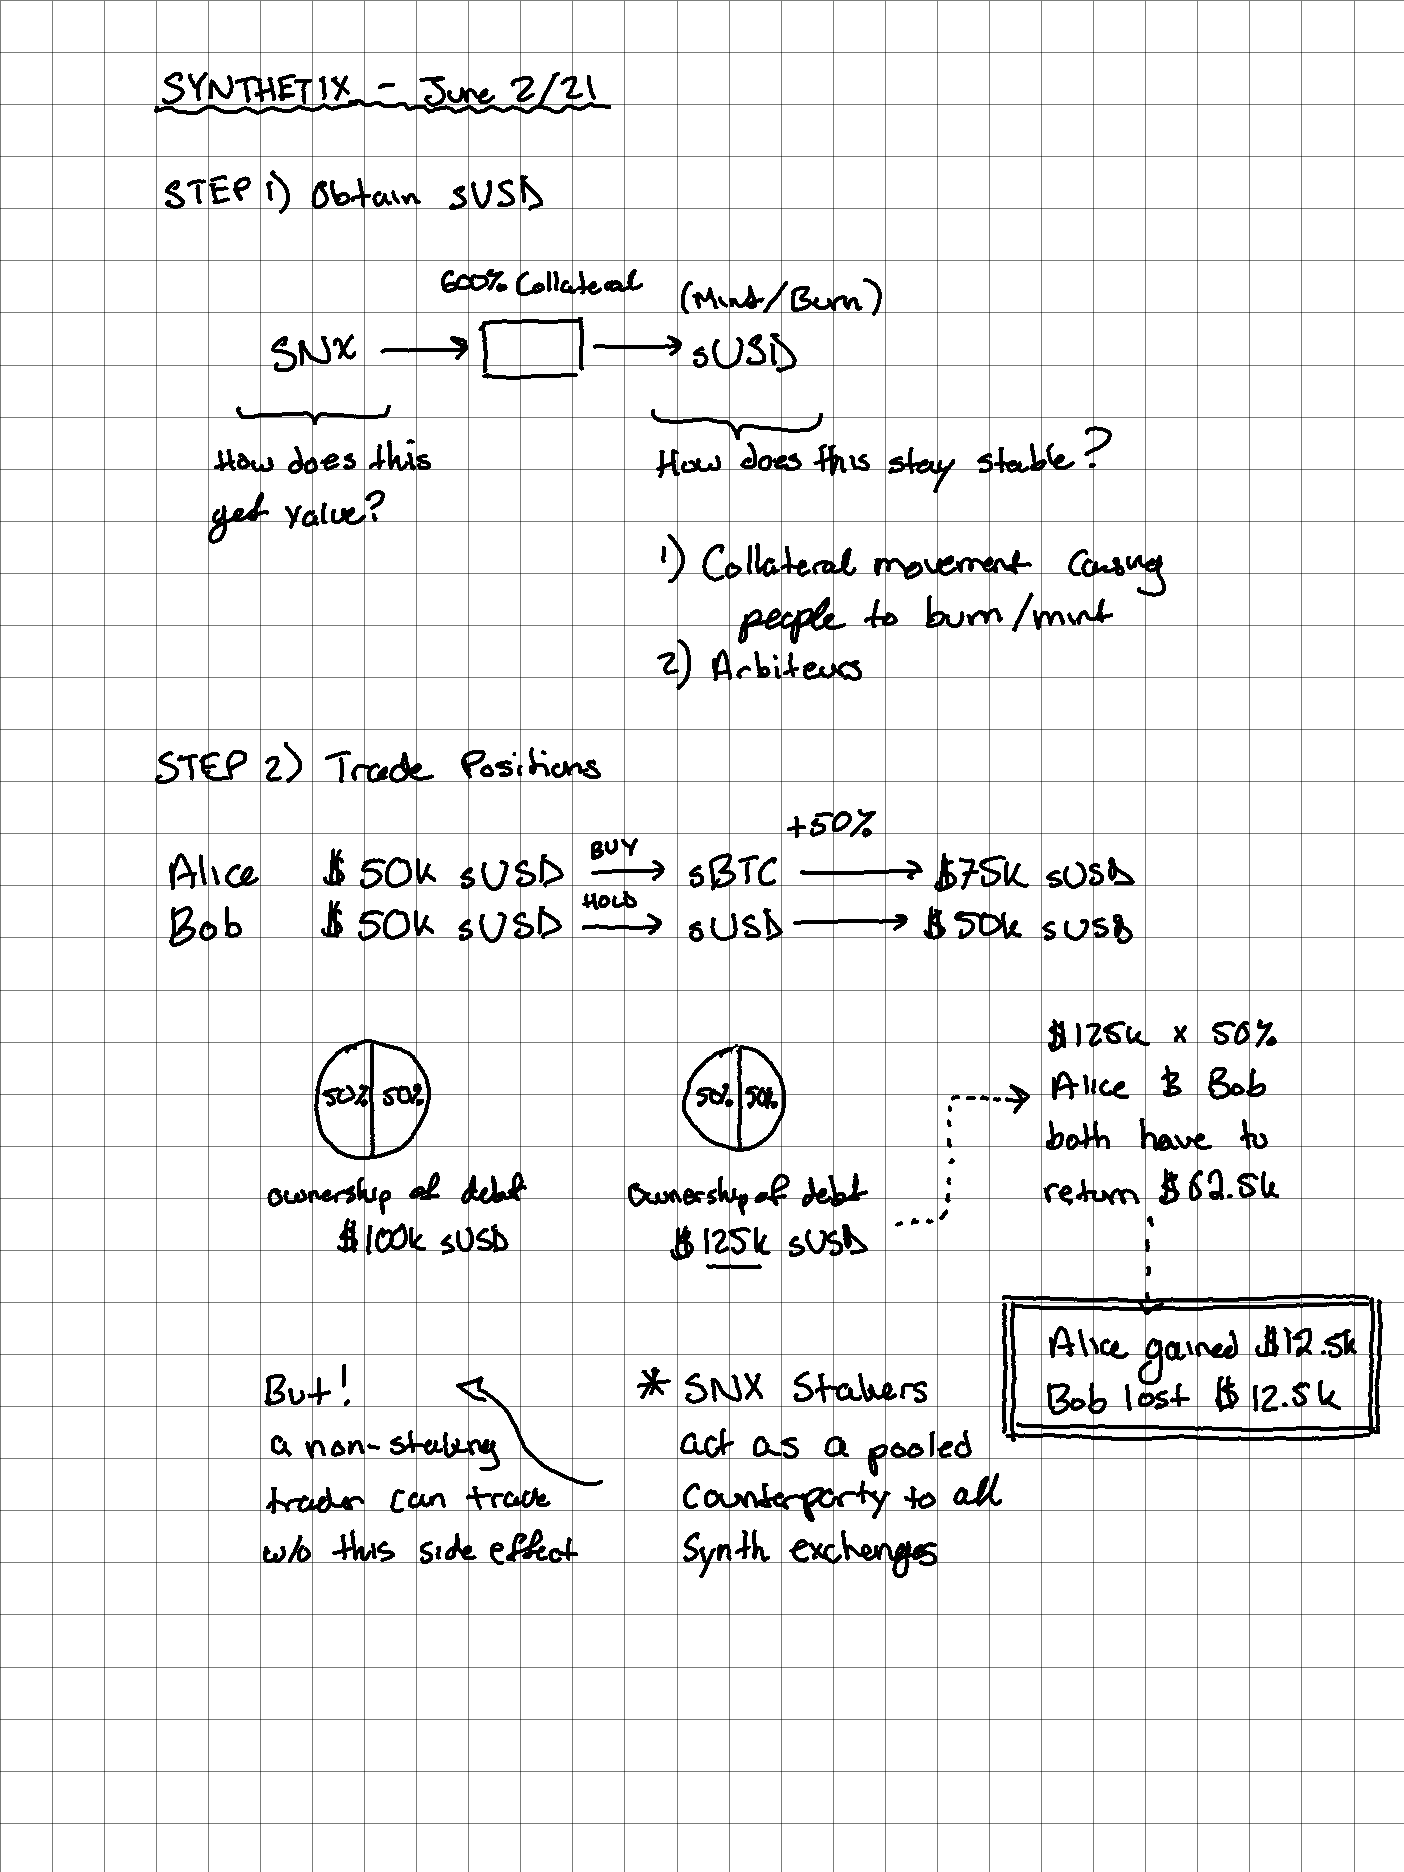 SYNTHETIX - June 2/21
STEP 1) Obtain sUSD
600% Collateral
(Mint/Burn)
SNX
sUSD
How does this
get value?
How does this stay stable?
1) Collateral movement causing
people to burn/mint
2) Arbiteurs
STEP 2) Trade Positions
+50%
Alice $50k sUSD BUY sBTC $75k sUSD
Bob $50k sUSD HOLD sUSD $50k sUSD
50% 50%
ownership of debt
$100k sUSD
50% 50%
Ownership of debt
$125k sUSD
$125k x 50%
Alice & Bob
both have to
return $62.5k
Alice gained $12.5k
Bob lost $12.5k
But!
a non-staking
trader can trade
w/o this side effect
* SNX Stakers
act as a pooled
Counterparty to all
Synth exchanges